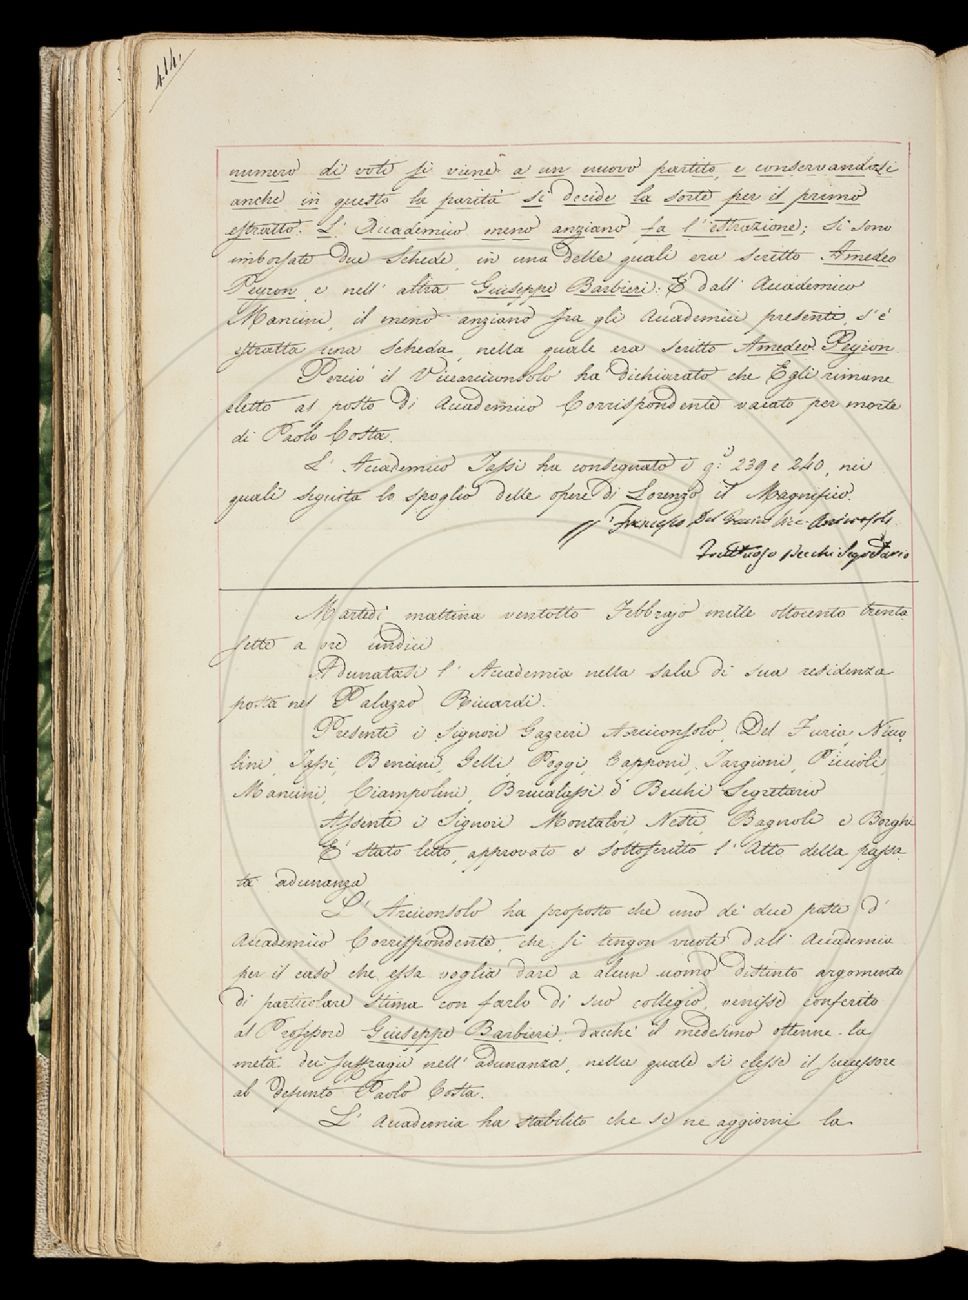 414.
numero di voti si viene a un nuovo partito, e conservandosi
anche in questo la parità si decide la sorte per il primo
estratto. L' Accademico meno anziano fa l' estrazione; Si sono
imborsate due Schede, in una delle quali era scritto Amedeo
Peyron e nell' altra Giuseppe Barbieri. E dall' Accademico
Mancini, il meno anziano fra gli Accademici presenti, s' è
estratta una scheda, nella quale era scritto Amedeo Peyron.
Perciò il Vicearciconsolo ha dichiarato che Egli rimane
eletto al posto di Accademico Corrispondente vacato per morte
di Paolo Costa.
L' Accademico Tassi ha consegnato i q.i 239 e 240, nei
quali seguita lo spoglio delle opere di Lorenzo il Magnifico.
Francesco Del Furia Vice Arciconsolo
Fruttuoso Becchi Segretario
Martedì mattina ventotto Febbrajo mille ottocento trenta
sette a ore undici
Adunatasi l' Accademia nella sala di sua residenza
posta nel Palazzo Riccardi.
Presenti i Signori Gazzeri Arciconsolo, Del Furia, Nicco,
lini, Tassi, Bencini, Gelli, Poggi, Capponi, Targioni, Puccioli,
Mancini, Ciampolini, Brucalassi e Becchi Segretario
Assenti i Signori Montalvi, Nesti, Bagnoli e Borghi
E' stato letto, approvato e sottoscritto l' Atto della passa
ta adunanza
L' Arciconsolo ha proposto che uno de' due posti d'
Accademico Corrispondente, che si tengon vuoti dall' Accademia
per il caso che essa voglia dare a alcun uomo distinto argomento
di particolare stima con farlo di suo collegio, venisse conferito
al Professore Giuseppe Barbieri; dacchè il medesimo ottenne la
metà dei suffragii nell' adunanza, nella quale si elesse il successore
al defunto Paolo Costa.
L' Accademia ha stabilito che se ne aggiorni la